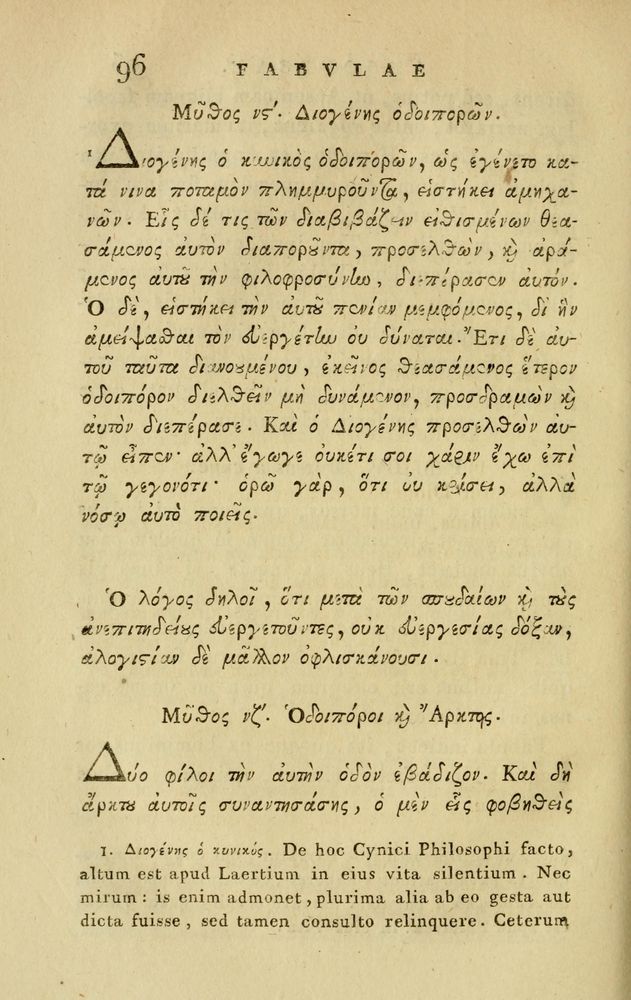 96 FABVLAE
Μῦθος νϛ'. Διογένης ὁδοιπορῶν.
¹ Διογένης ὁ κυνικὸς ὁδοιπορῶν, ὡς ἐγένετο κα-
τά τινα ποταμὸν πλημμυροῦντα, εἱστήκει ἀμηχα-
νῶν. Εἷς δέ τις τῶν διαβιβάζειν εἰθισμένων θεα-
σάμενος αὐτὸν διαποροῦντα, προσελθὼν, κỳ ἀρά-
μενος αὐτοῦ τὴν φιλοφροσύνην, διεπέρασεν αὐτόν.
Ὁ δὲ, εἱστήκει τὴν αὐτοῦ πενίαν μεμφόμενος, δι' ἣν
ἀμείψασθαι τὸν εὐεργέτην οὐ δύναται. Ἔτι δὲ αὐ-
τοῦ ταῦτα διανουμένου, ἐκεῖνος θεασάμενος ἕτερον
ὁδοιπόρον διελθεῖν μὴ δυνάμενον, προσδραμὼν κỳ
αὐτὸν διεπέρασε. Καὶ ὁ Διογένης προσελθὼν αὐ-
τῷ εἶπεν· ἀλλ' ἔγωγε οὐκέτι σοι χάριν ἔχω ἐπὶ
τῷ γεγονότι· ὁρῶ γὰρ, ὅτι οὐ κρίσει, ἀλλὰ
νόσῳ αὐτὸ ποιεῖς.
Ὁ λόγος δηλοῖ, ὅτι μετὰ τῶν σπουδαίων κỳ τοὺς
ἀνεπιτηδείους εὐεργετοῦντες, οὐκ εὐεργεσίας δόξαν,
ἀλογιστίαν δὲ μᾶλλον ὀφλισκάνουσι.
Μῦθος νζ'. Ὁδοιπόροι κỳ Ἄρκτος.
Δύο φίλοι τὴν αὐτὴν ὁδὸν ἐβάδιζον. Καὶ δὴ
ἄρκτου αὐτοῖς συναντησάσης, ὁ μὲν εἷς φοβηθεὶς
1. Διογένης ὁ κυνικός. De hoc Cynici Philosophi facto,
altum est apud Laertium in eius vita silentium. Nec
mirum: is enim admonet, plurima alia ab eo gesta aut
dicta fuisse, sed tamen consulto relinquere. Ceterum